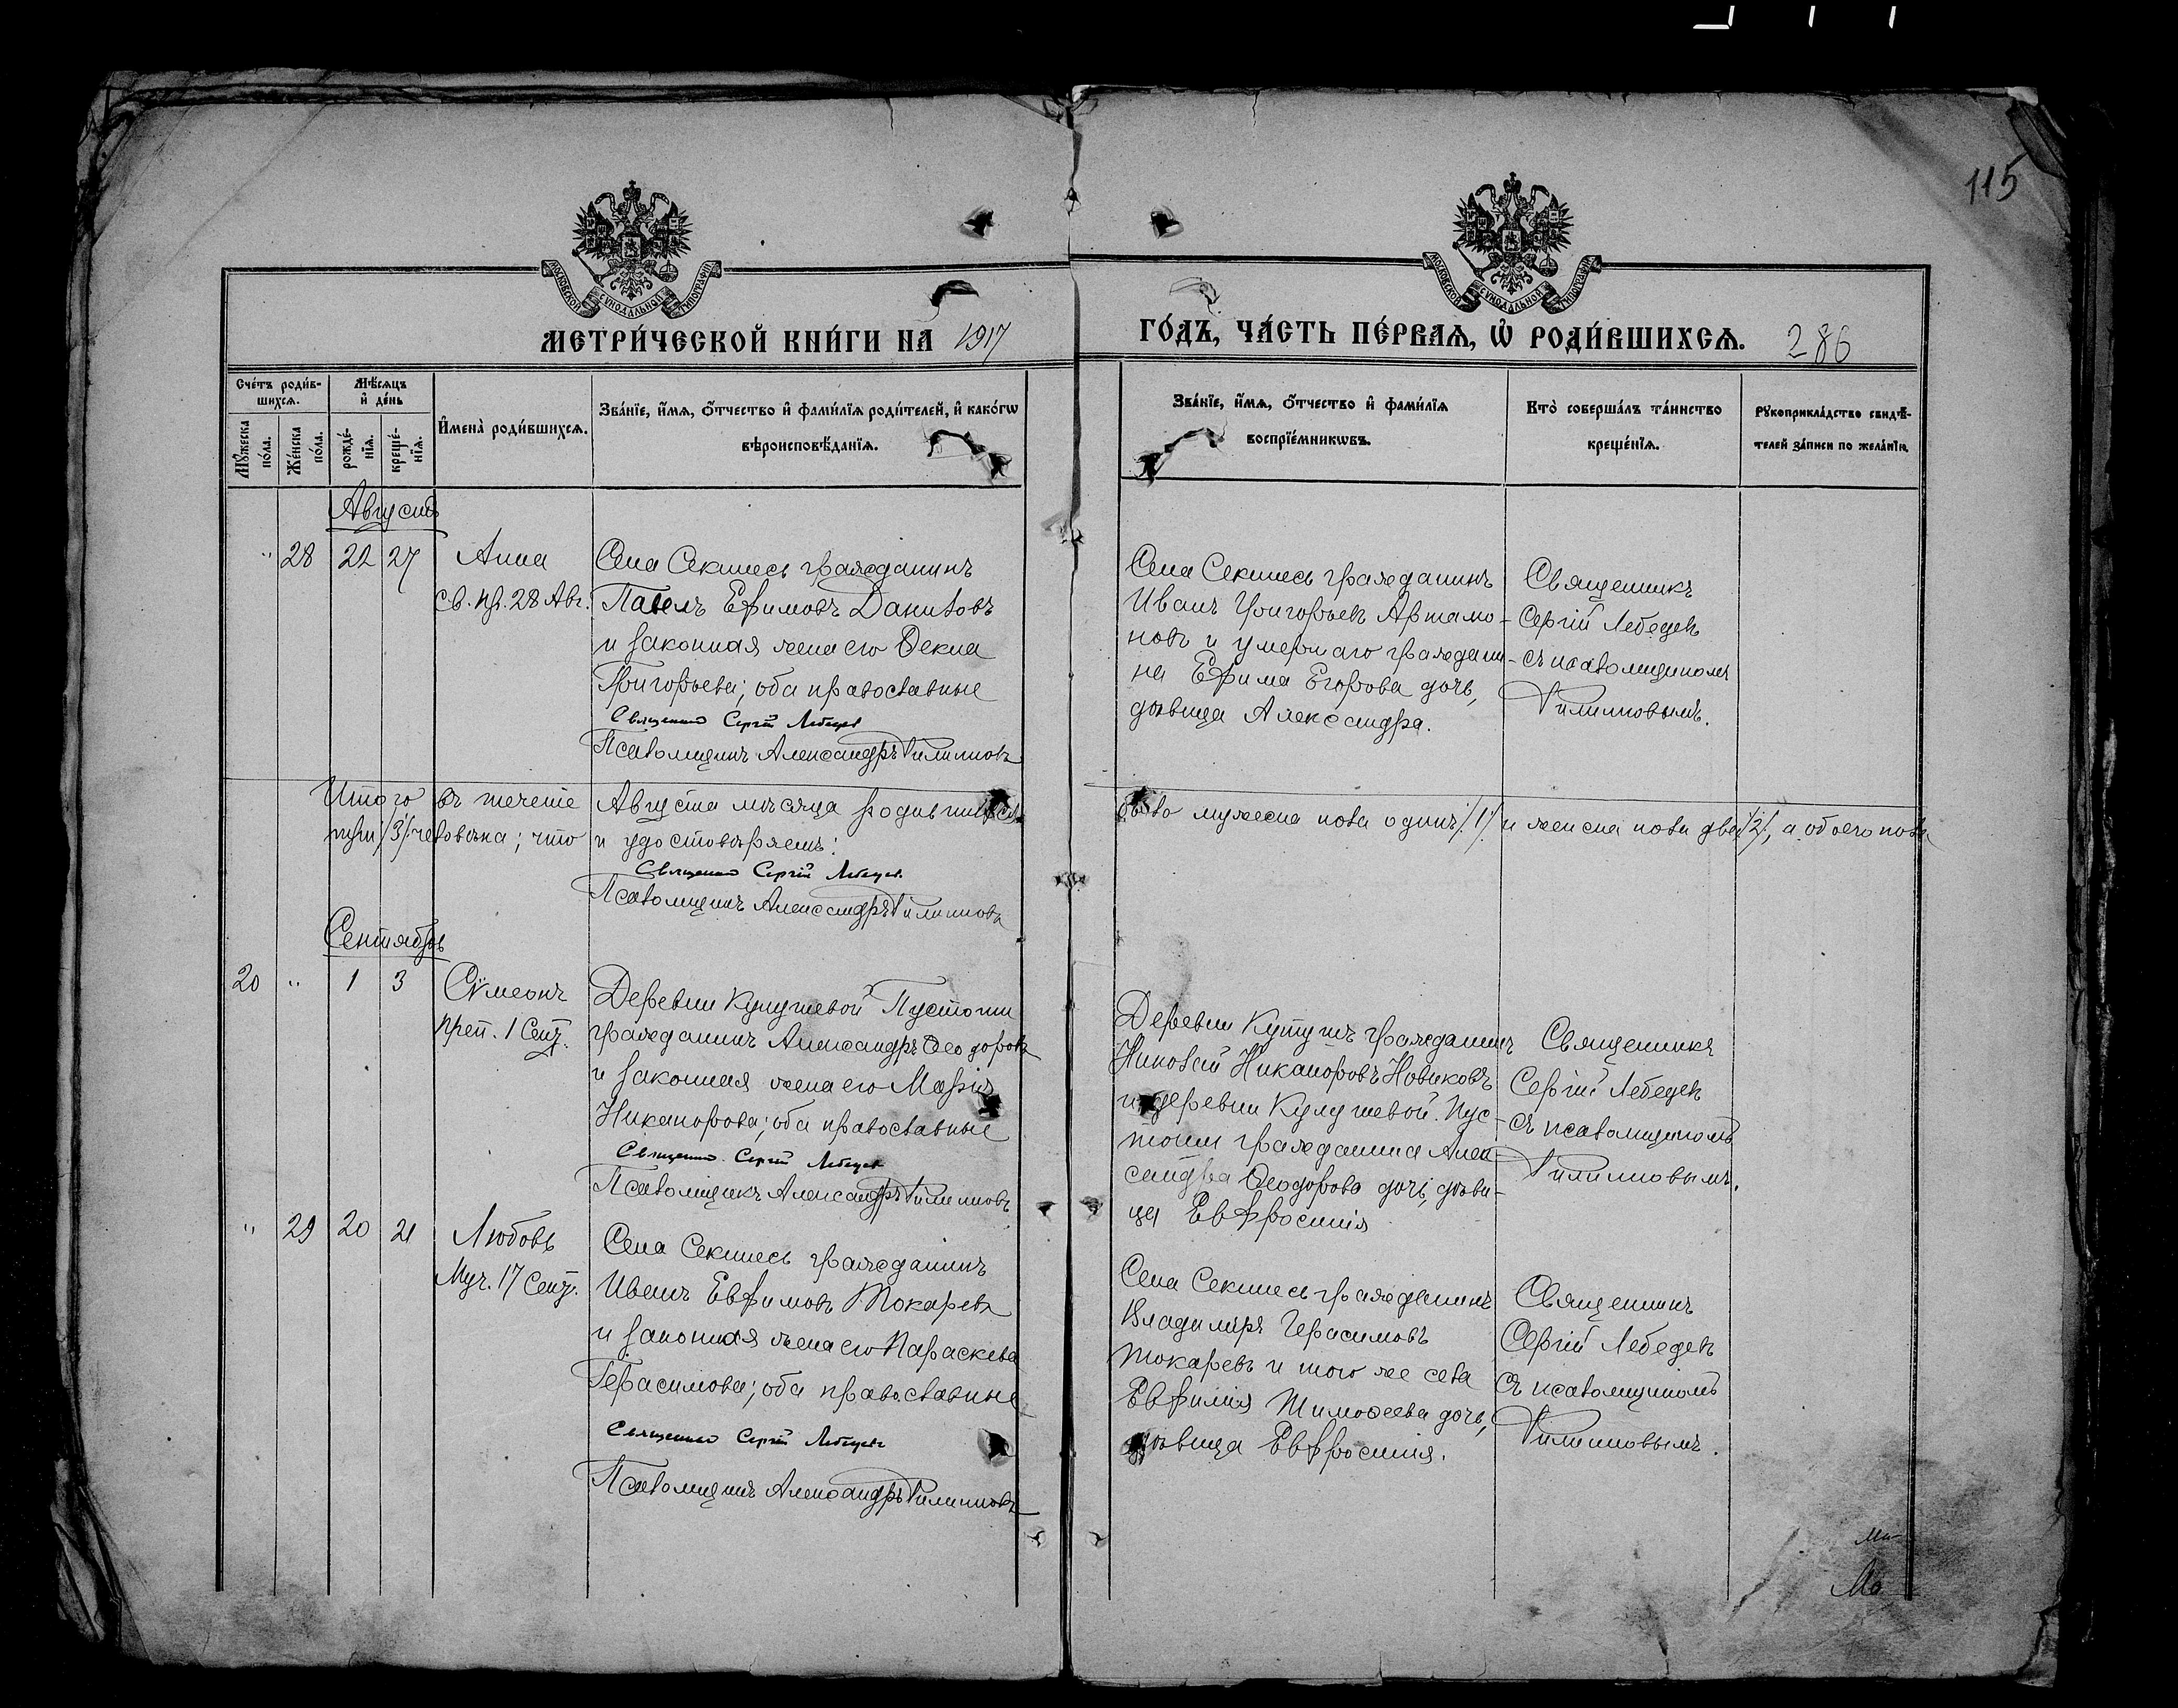 115
МОСКОВСКОЙ СУНОДАЛЬНОЙ ТИПОГРАФІИ
МОСКОВСКОЙ СУНОДАЛЬНОЙ ТИПОГРАФІИ
МЕТРИ́ЧЕСКОЙ КНИ́ГИ НА 1917
ГО́ДЪ, ЧА́СТЬ ПЕ́РВАѦ, Ѡ҆ РОДИ́ВШИХСѦ. 286
Сче́тъ роди́в-
шихсѧ.
Мꙋ́жеска по́ла.
Же́нска по́ла.
Мѣ́сѧцъ
и҆ де́нь
рожде́-
нїѧ.
креще́-
нїѧ.
И҆мена̀ роди́вшихсѧ.
Зва́нїе, и҆́мѧ, ѻ҆́тчество и҆ фами́лїѧ роди́телей, и҆ како́гѡ
вѣроисповѣ́данїѧ.
Зва́нїе, и҆́мѧ, ѻ҆́тчество и҆ фами́лїѧ
воспрїе́мникѡвъ.
Кто̀ соверша́лъ та́инство
креще́нїѧ.
Рꙋкоприкла́дство свидѣ́-
телей за́писи по жела́нїю.
Августъ
" 28 22 27
Анна
св. пр. 28 Авг.
Села Секшесь гражданинъ
Павелъ Ефимовъ Даниловъ
и законная жена его Ѳекла
Григорьева; оба православные
Священникъ Сергій Лебедевъ
Псаломщикъ Александръ Филипповъ
Села Секшесь гражданинъ
Иванъ Григорьевъ Артамо-
новъ и умершаго граждани-
на Ефима Егорова дочь,
дѣвица Александра.
Священникъ
Сергій Лебедевъ
съ псаломщикомъ
Филипповымъ.
Итого въ теченіе Августа мѣсяца родившихся было мужеска пола одинъ /1/ и женска пола два /2/, а обоего пола
три /3/ человѣка; что и удостовѣряемъ:
Священникъ Сергій Лебедевъ.
Псаломщикъ Александръ Филипповъ
Сентябрь
20 " 1 3
Сѵмеонъ
Преп. 1 Сент.
Деревни Кулушевой Пустоши
гражданинъ Александръ Ѳеодоровъ
и законная жена его Марія
Никанорова; оба православные
Священникъ Сергій Лебедевъ
Псаломщикъ Александръ Филипповъ
Деревни гражданинъ
Николай Никаноровъ Новиковъ
и деревни Кулушевой Пус-
тоши гражданина Алек-
сандра Ѳеодорова дочь, дѣви-
ца Евфросинія
Священникъ
Сергій Лебедевъ
съ псаломщикомъ
Филипповымъ.
" 29 20 21
Любовь
Муч. 17 Сент.
Села Секшесь гражданинъ
Иванъ Евфимовъ Токаревъ
и законная жена его Параскева
Герасимова; оба православные
Священникъ Сергій Лебедевъ
Псаломщикъ Александръ Филипповъ
Села Секшесь гражданинъ
Владиміръ Герасимовъ
Токаревъ и того же села
Евфимія Тимоѳеева дочь,
дѣвица Евфросинія.
Священникъ
Сергій Лебедевъ
съ псаломщикомъ
Филипповымъ.